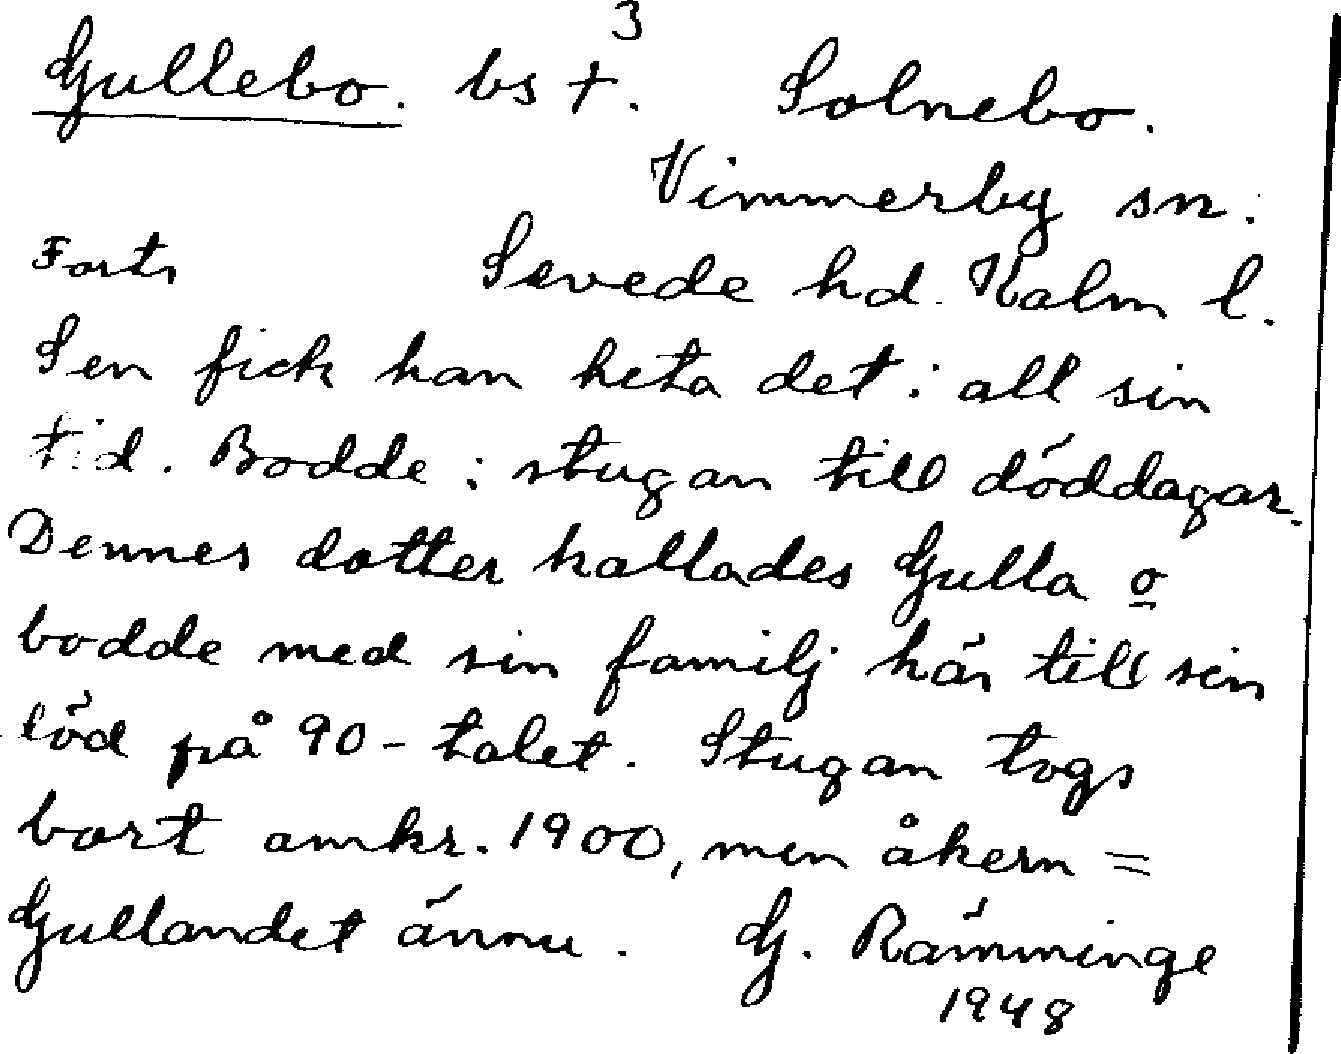 Gullebo. bs †. 3 Solnebo.
Vimmerby sn.
Forts Sevede hd. Kalm l.
Sen fick han heta det i all sin
tid. Bodde i stugan till döddagar.
Dennes dotter kallades Gulla o
bodde med sin familj här till sin
död på 90-talet. Stugan togs
bort omkr. 1900, men åkern =
Gullandet ännu. G. Rämminge
1948